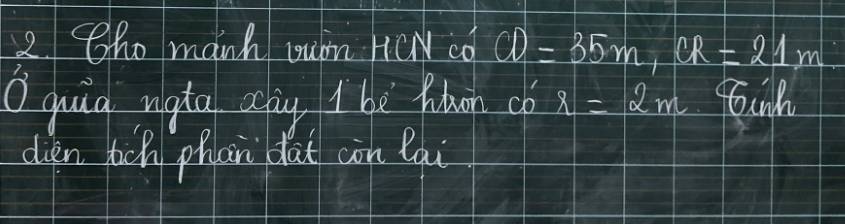 2. Cho mảnh vườn HCN có CD = 35m, CR = 21m
Ở giữa ngta xây 1 bể htròn có r = 2m. Tính
diện tích phần đất còn lại.